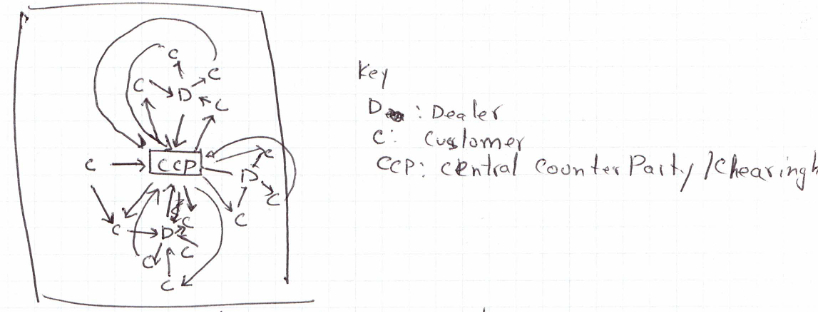 C
C
C
D
C
C
CCP
C
D
C
C
C
C
D
C
C
C
Key
D : Dealer
C: Customer
CCP: Central Counter Party/